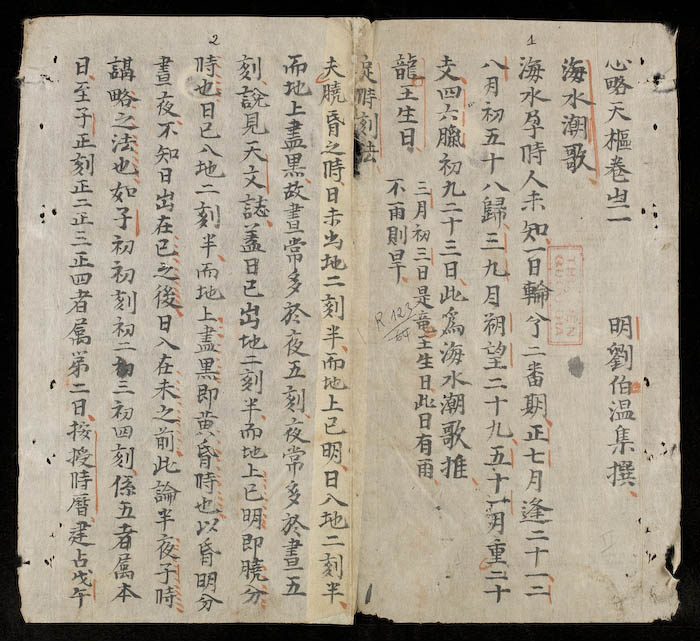 心略天樞卷㞢一
明劉伯温集撰
海水潮歌
海水孕時人未知一日輪兮二番期正七月逢二十一二
八月初五十八歸三九月朔望二十九五十一月重二十
支四六臘初九二十三日此爲海水潮歌推
龍王生日
三月初三日是竜王生日此日有雨
不雨則旱
定時刻法
夫曉昏之時日未出地二刻半而地上已明日入地二刻半
而地上盡黑故晝常多於夜五刻夜常多於晝五
刻說見天文誌盖日已出地二刻半而地上已明即曉分
時也日已入地二刻半而地上盡黒即黄昏時也以昏明分
晝夜不知日出在已之後日入在未之前此論半夜子時
講略之法也如子初初刻初二初三初四刻係五者属本
日至子正刻正二正三正四者属第二日按授時曆建占戊午
1
2
R 123